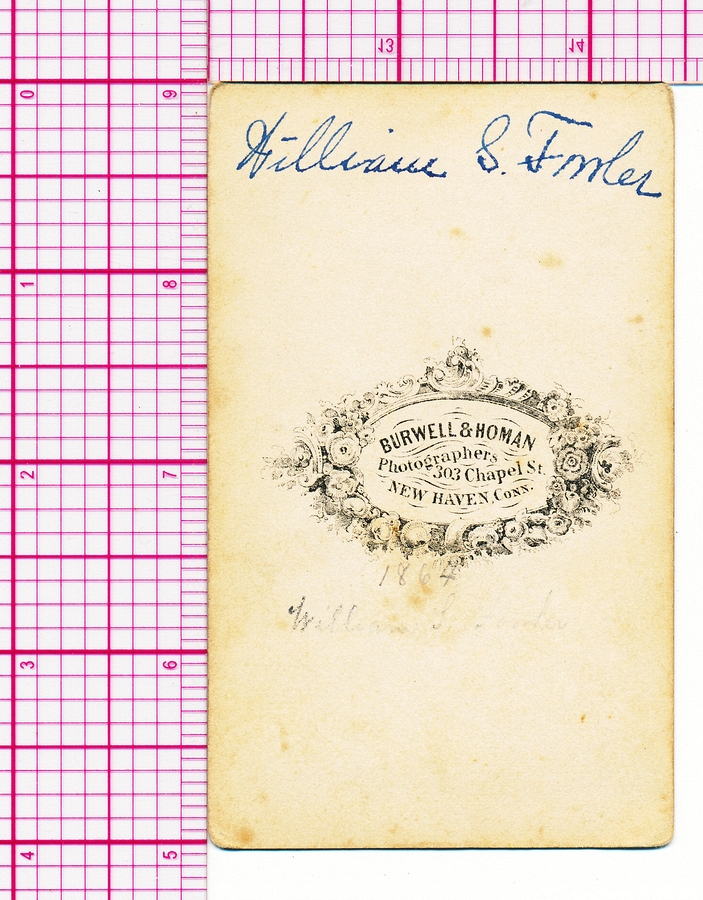 13
14
0
9
William S. Fowler
1
8
BURWELL & HOMAN
Photographers
303 Chapel St.
NEW HAVEN, CONN.
2
7
1864
William S. Fowler
3
6
4
5